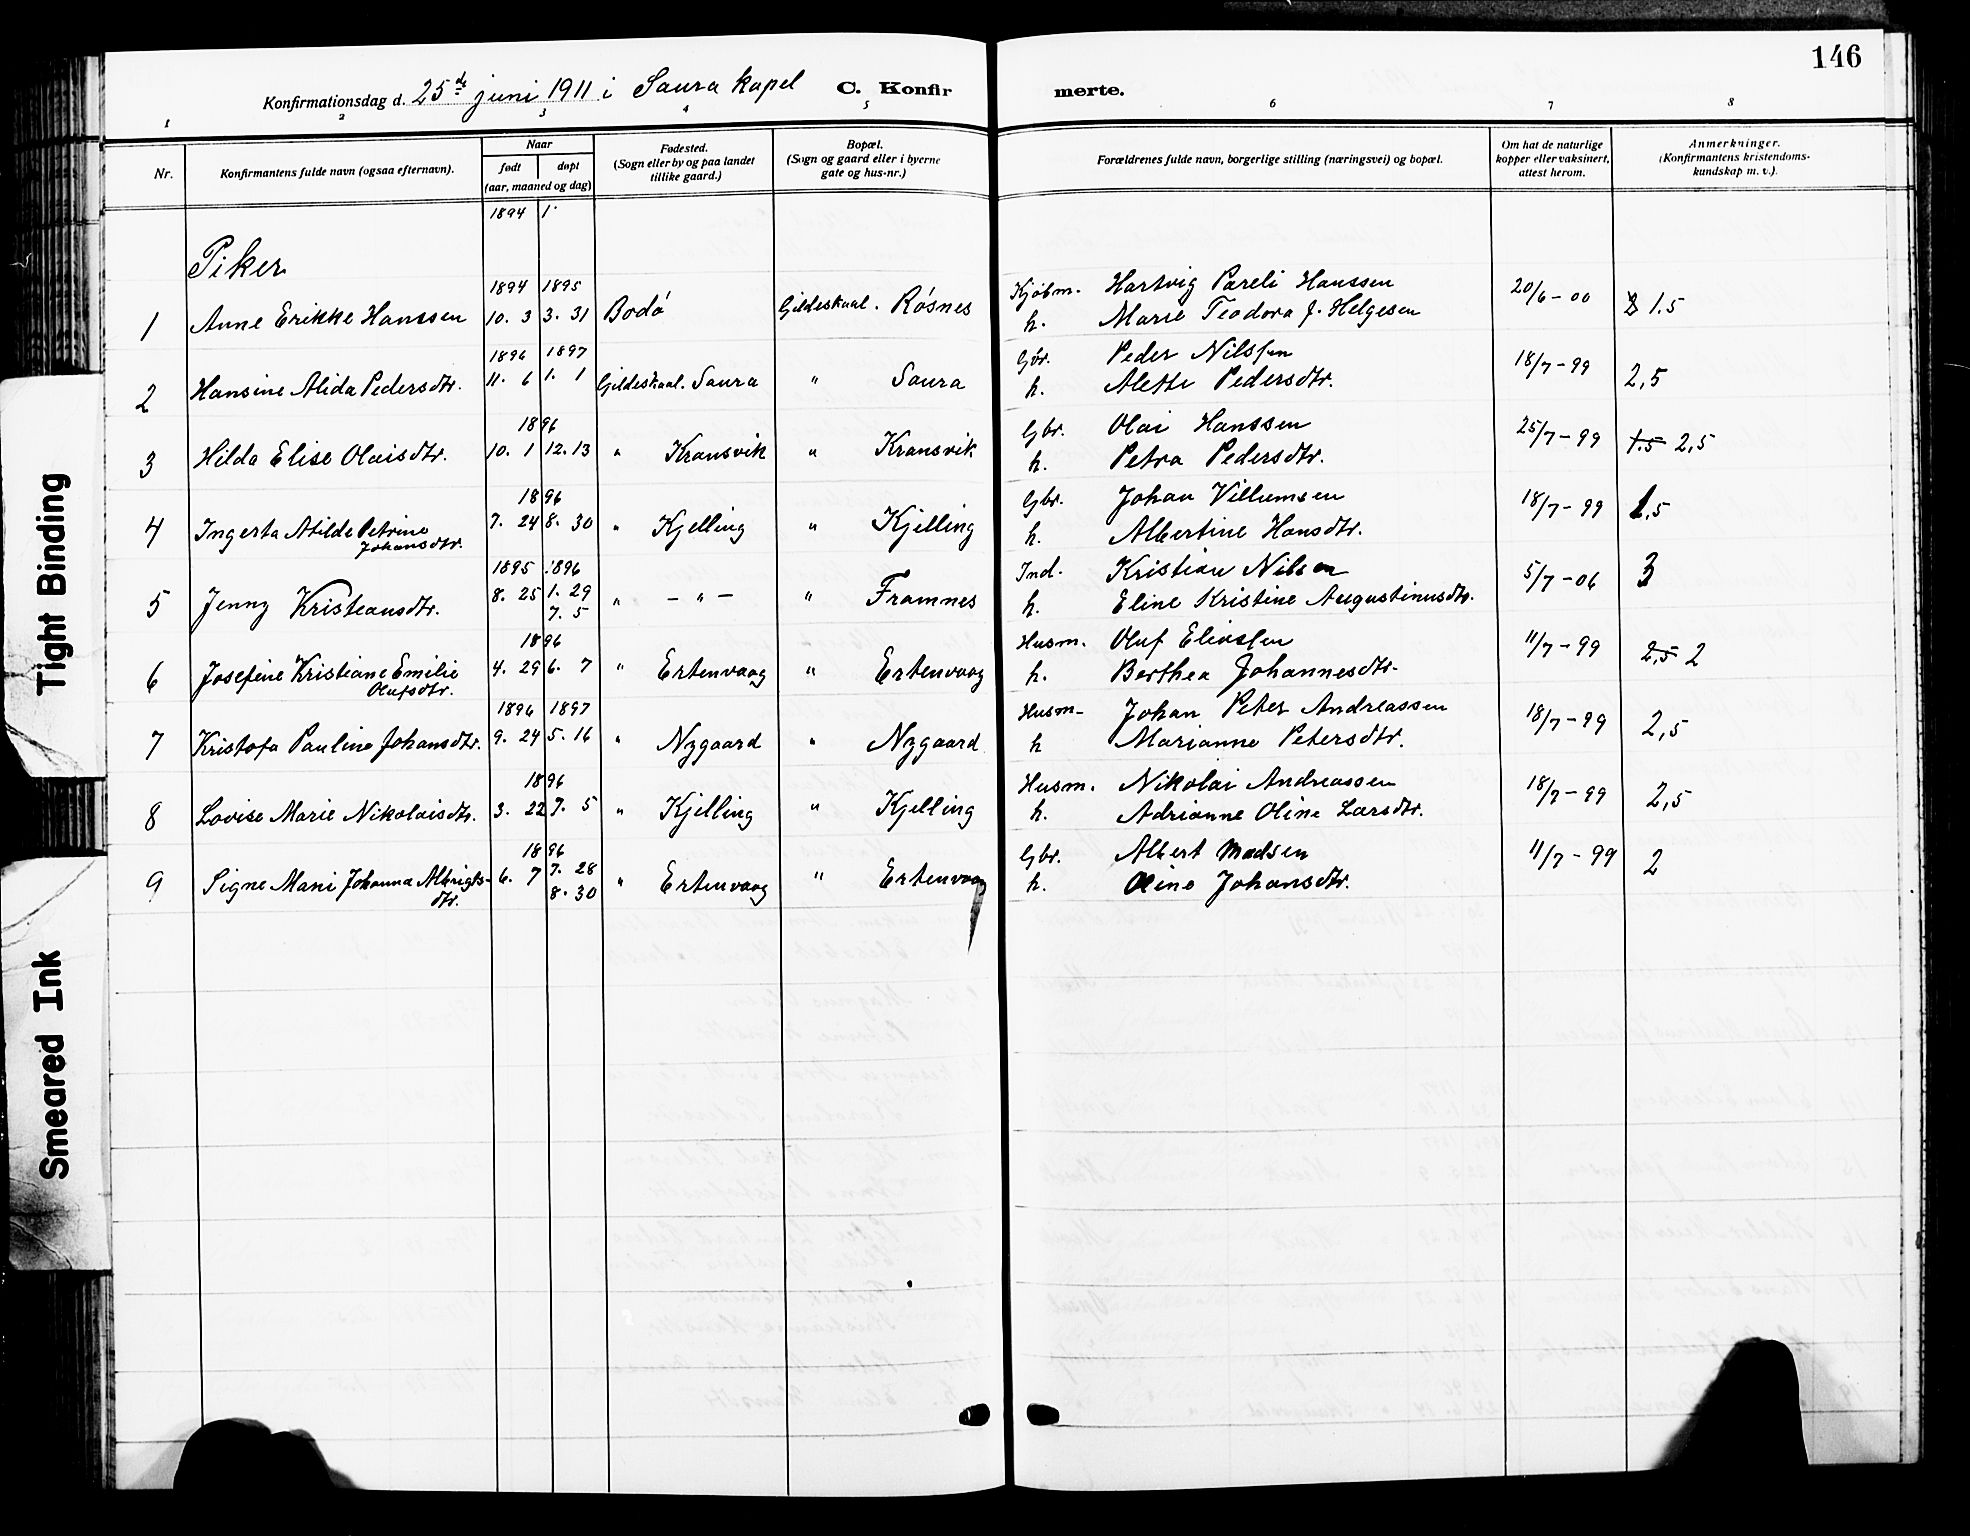 146
Konfirmationsdag d. 25de juni 1911 i Saura kapel C. Konfirmerte.
1 2 3 4 5 6 7 8
Nr. Konfirmantens fulde navn (ogsaa efternavn). Naar født døpt (aar, maaned og dag) Fødested. (Sogn eller by og paa landet tillike gaard.) Bopæl. (Sogn og gaard eller i byerne gate og hus-nr.) Forældrenes fulde navn, borgerlige stilling (næringsvei) og bopæl. Om hat de naturlige kopper eller vaksinert, attest herom. Anmerkninger. (Konfirmantens kristendomskundskap m. v.).
1894 1
Piker
1894 1895 Kjøbm. Hartvig Pareli Hanssen
1 Anne Erikke Hanssen 10. 3 3. 31 Bodø Gildeskaal. Røsnes h. Marie Teodora J. Helgesen 20/6-00 1.5
1896 1897 Gbr. Peder Nilssen
2 Hansine Alida Pedersdtr. 11. 6 1. 1 Gildeskaal. Saura " Saura h. Alette Pedersdtr. 18/7-99 2,5
1896 Gbr. Olai Hanssen
3 Hilda Elise Olaisdtr. 10. 1 12. 13 " Kransvik " Kransvik h. Petra Pedersdtr. 25/7-99 1.5 2,5
1896 Gbr. Johan Villumsen
4 Ingerta Atilde Petrine Johansdtr. 7. 24 8. 30 " Kjelling " Kjelling h. Albertine Hansdtr. 18/7-99 1,5
1895 1896 Ind. Kristian Nilsen
5 Jenny Kristiansdtr. 8. 25 1. 29 7. 5 " - " - " Framnes h. Eline Kristine Augustinusdtr. 5/7-06 3
1896 Husm. Oluf Eliassen
6 Josefine Kristiane Emilie Olufsdtr. 4. 29 6. 7 " Ertenvaag " Ertenvaag h. Berthea Johannesdtr. 11/7-99 2,5 2
1896 1897 Husm. Johan Peter Andreassen
7 Kristofa Pauline Johansdtr. 9. 24 5. 16 " Nygaard " Nygaard h Marianne Petersdtr. 18/7-99 2,5
1896 Husm. Nikolai Andreassen
8 Lovise Marie Nikolaisdtr. 3. 22 7. 5 " Kjelling " Kjelling h. Adrianne Oline Larsdtr. 18/7-99 2,5
1896 Gbr. Albert Madsen
9 Signe Mani Johanna Albrigtsdtr. 6. 7 7. 28 8. 30 " Ertenvaag " Ertenvaag h. Oline Johansdtr. 11/7-99 2
Tight Binding
Smeared Ink